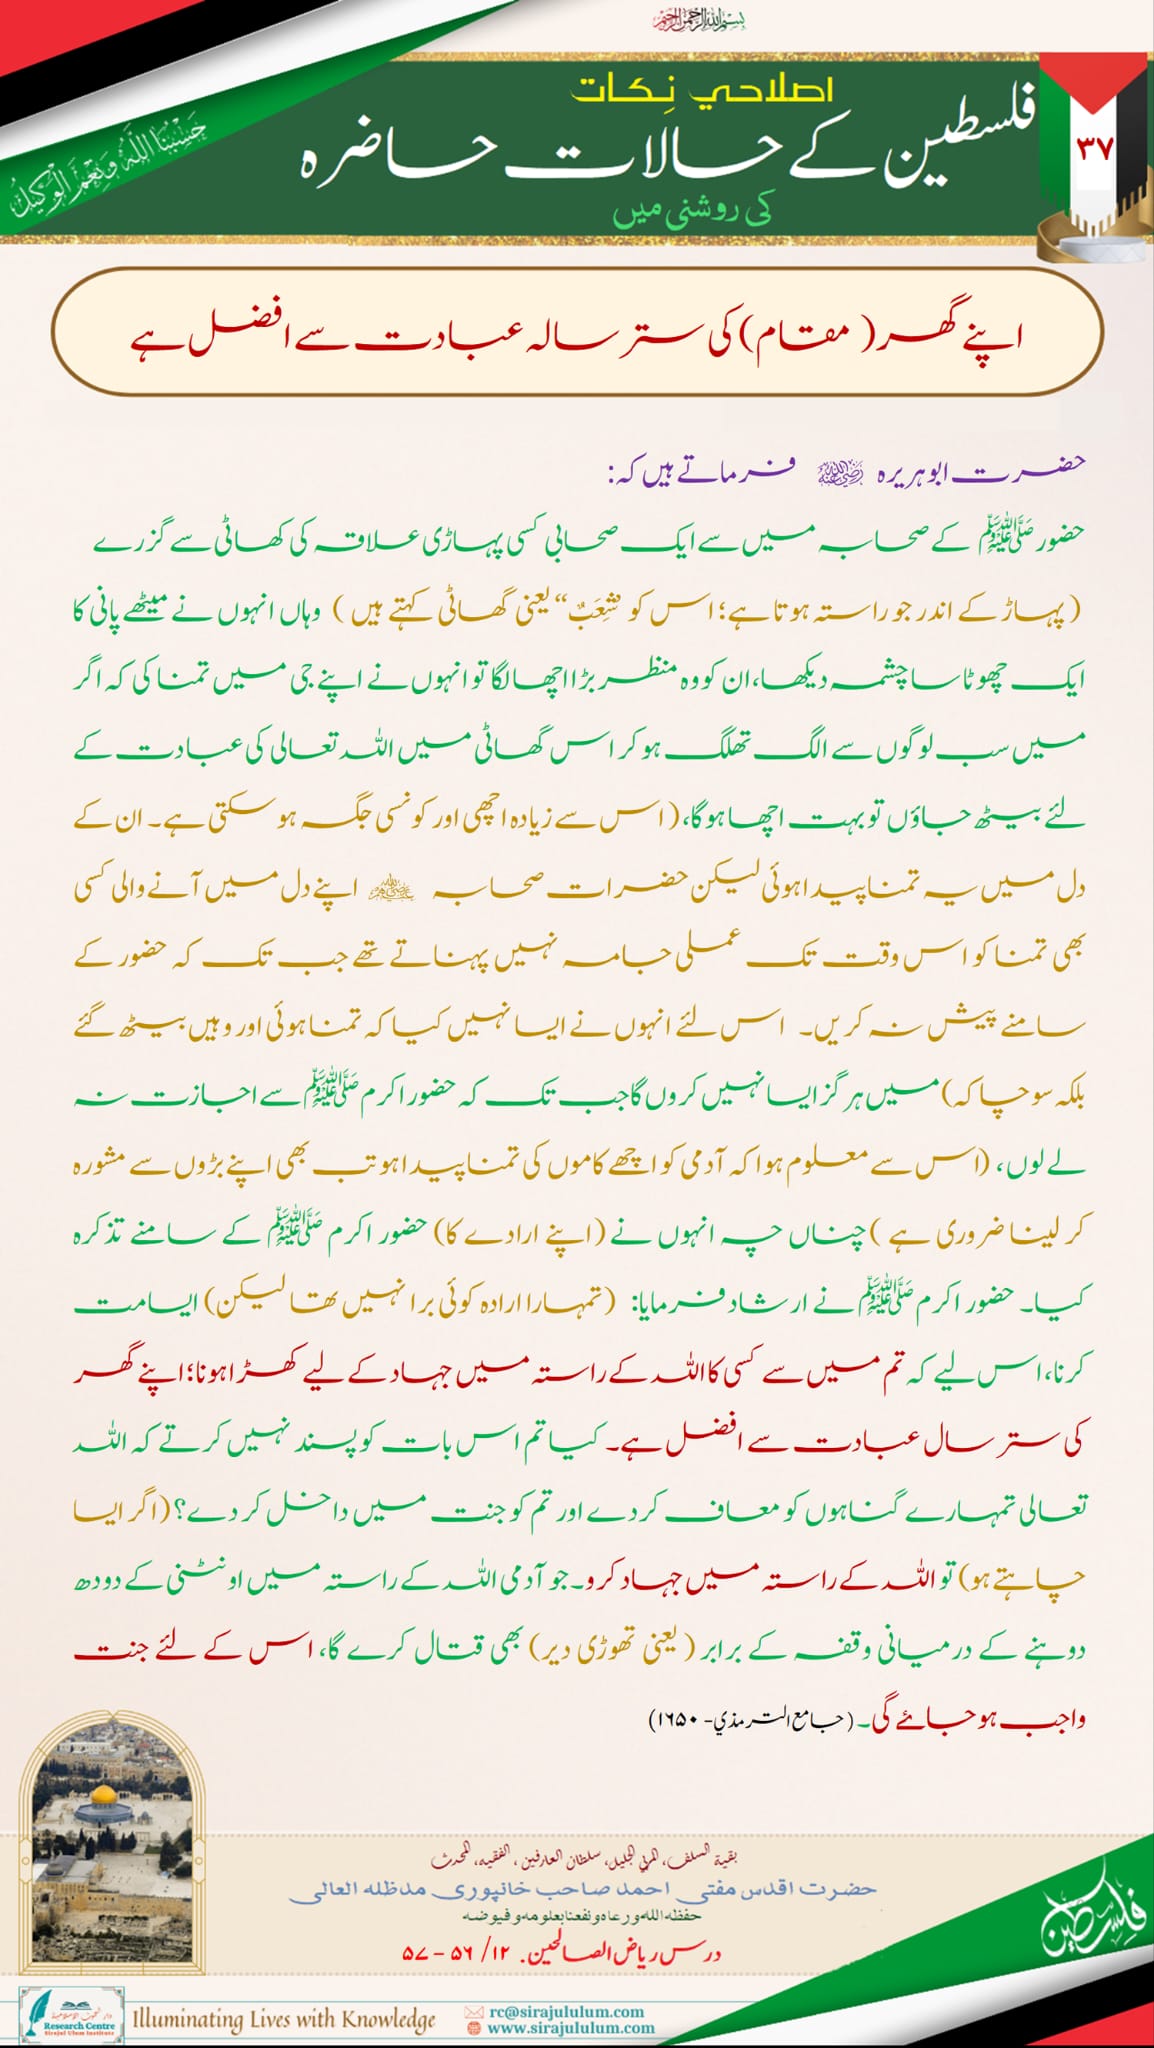 بسم الله الرحمن الرحيم
حَسْبُنَا اللَّهُ وَنِعْمَ الْوَكِيلُ
۳۷
اصلاحي نِكات
فلسطین کے حالات حاضرہ
کی روشنی میں
اپنے گھر ( مقام) کی ستر سالہ عبادت سے افضل ہے
حضرت ابوہریرہ رضی اللہ عنہ فرماتے ہیں کہ:
حضور ﷺ کے صحابہ میں سے ایک صحابی کسی پہاڑی علاقہ کی کھائی سے گزرے
( پہاڑ کے اندر جو راستہ ہوتا ہے؛ اس کو ”شِعَبٌ“ یعنی گھاٹی کہتے ہیں ) وہاں انہوں نے میٹھے پانی کا
ایک چھوٹا سا چشمہ دیکھا، ان کو وہ منظر بڑا اچھا لگا تو انہوں نے اپنے جی میں تمنا کی کہ اگر
میں سب لوگوں سے الگ تھلگ ہو کر اس گھاٹی میں اللہ تعالی کی عبادت کے
لئے بیٹھ جاؤں تو بہت اچھا ہوگا، ( اس سے زیادہ اچھی اور کونسی جگہ ہو سکتی ہے۔ ان کے
دل میں یہ تمنا پیدا ہوئی لیکن حضرات صحابہ اپنے دل میں آنے والی کسی
بھی تمنا کو اس وقت تک عملی جامہ نہیں پہناتے تھے جب تک کہ حضور کے
سامنے پیش نہ کریں۔ اس لئے انہوں نے ایسا نہیں کیا کہ تمنا ہوئی اور وہیں بیٹھ گئے
بلکہ سوچا کہ) میں ہرگز ایسا نہیں کروں گا جب تک کہ حضور اکرم ﷺ سے اجازت نہ
لے لوں، (اس سے معلوم ہوا کہ آدمی کو اچھے کاموں کی تمنا پیدا ہو تب بھی اپنے بڑوں سے مشورہ
کر لینا ضروری ہے ) چناں چہ انہوں نے (اپنے ارادے کا) حضور اکرم ﷺ کے سامنے تذکرہ
کیا۔ حضور اکرم ﷺ نے ارشاد فرمایا: (تمہارا ارادہ کوئی برا نہیں تھا لیکن) ایسا مت
کرنا، اس لیے کہ تم میں سے کسی کا اللہ کے راستہ میں جہاد کے لیے کھڑا ہونا؛ اپنے گھر
کی ستر سال عبادت سے افضل ہے۔ کیا تم اس بات کو پسند نہیں کرتے کہ اللہ
تعالی تمہارے گناہوں کو معاف کر دے اور تم کو جنت میں داخل کر دے؟ (اگر ایسا
چاہتے ہو) تو اللہ کے راستہ میں جہاد کرو۔ جو آدمی اللہ کے راستہ میں اونٹنی کے دودھ
دوہنے کے درمیانی وقفہ کے برابر ( یعنی تھوڑی دیر) بھی قتال کرے گا، اس کے لئے جنت
واجب ہو جائے گی۔ (جامع الترمذي- ۱۶۵۰)
بقية السلف، المربي الجليل، سلطان العارفين، الفقيه، المحدث
حضرت اقدس مفتی احمد صاحب خانپوری مدظلہ العالی
حفظه الله ورعاه ونفعنا بعلومه وفيوضه
درس ریاض الصالحین. ۱۲/ ۵۶ - ۵۷
فلسطين
Research Centre
Sirajul Ulum Institute
Illuminating Lives with Knowledge
rc@sirajululum.com
www.sirajululum.com